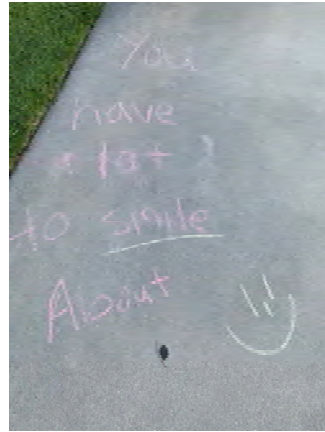 You
have
a lot
to smile
About